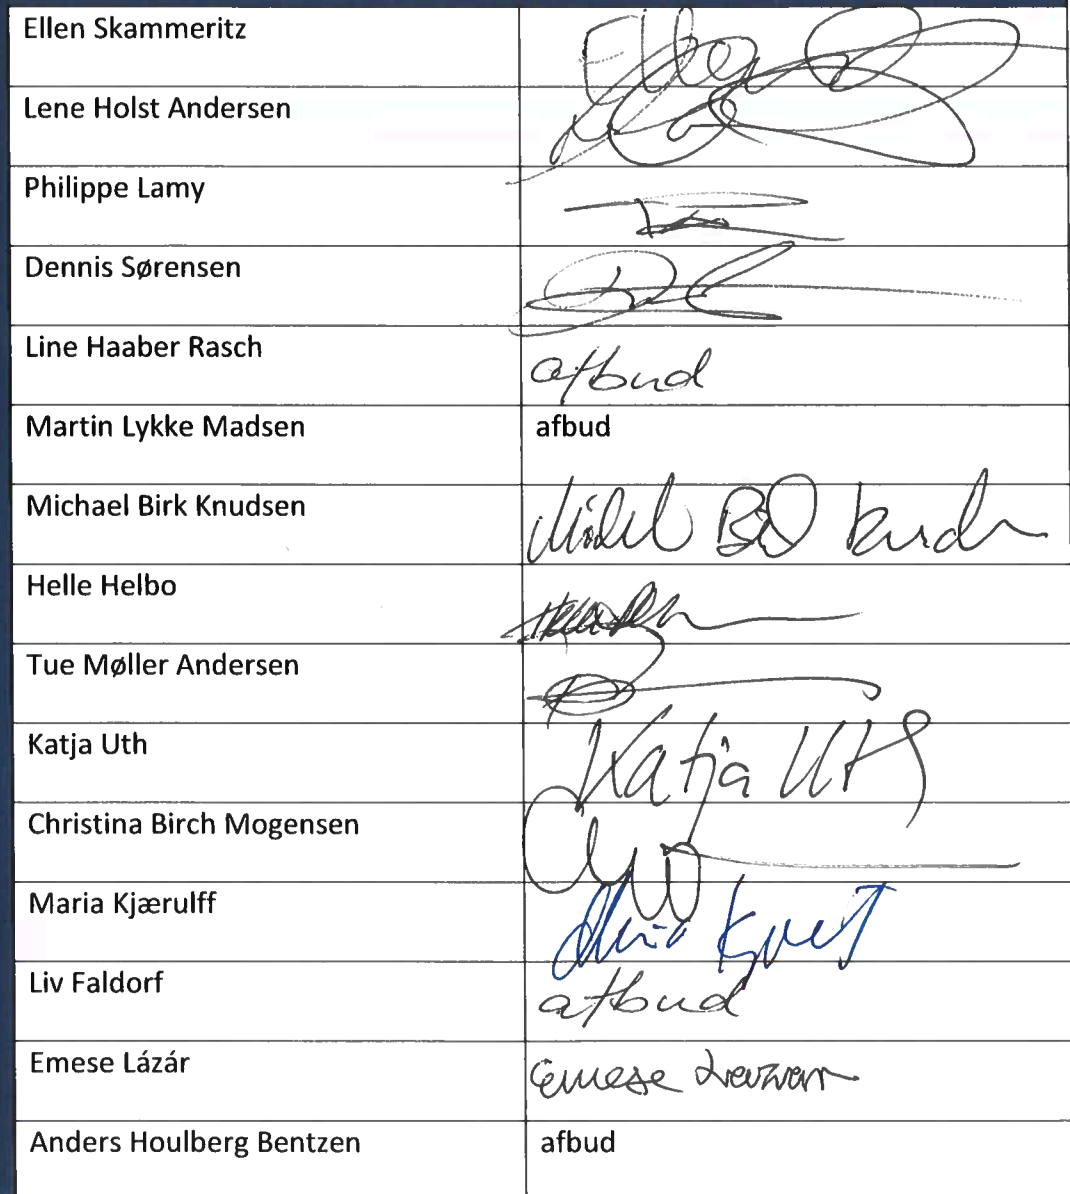 Ellen Skammeritz Ellen
Lene Holst Andersen
Philippe Lamy
Dennis Sørensen
Line Haaber Rasch afbud
Martin Lykke Madsen afbud
Michael Birk Knudsen
Helle Helbo
Tue Møller Andersen
Katja Uth Katja Uth
Christina Birch Mogensen
Maria Kjærulff
Liv Faldorf afbud
Emese Lázár Emese
Anders Houlberg Bentzen afbud